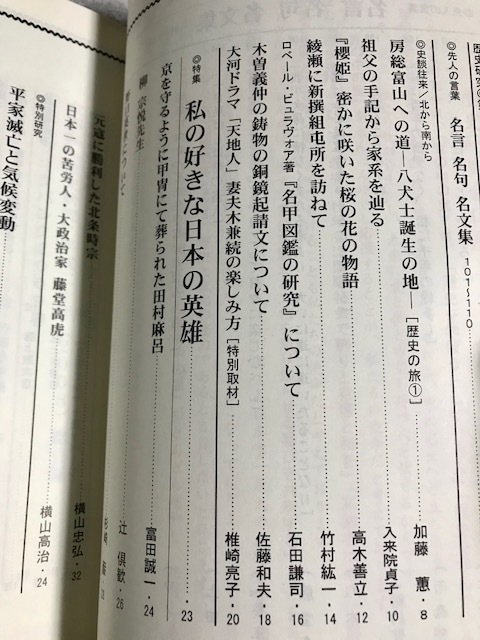 歴史研究
◎先人の言葉 名言 名句 名文集 101〜110
◎史談往来/北から南から
房総富山への道―八犬士誕生の地― [歴史の旅①] 加藤 蕙・8
祖父の手記から家系を辿る 入来院貞子・10
『櫻姫』密かに咲いた桜の花の物語 高木善立・12
綾瀬に新撰組屯所を訪ねて 竹村紘一・14
ロベール・ビュラヴォア著『名甲図鑑の研究』について 石田謙司・16
木曽義仲の鋳物の銅鏡起請文について 佐藤和夫・18
大河ドラマ「天地人」妻夫木兼続の楽しみ方 [特別取材] 椎崎亮子・20
◎特集 私の好きな日本の英雄 23
京を守るように甲冑にて葬られた田村麻呂 富田誠一・24
柳 宗悦先生 辻 倶歓・26
元寇に勝利した北条時宗
日本一の苦労人・大政治家 藤堂高虎 横山忠弘・32
◎特別研究
平家滅亡と気候変動 横山高治・24